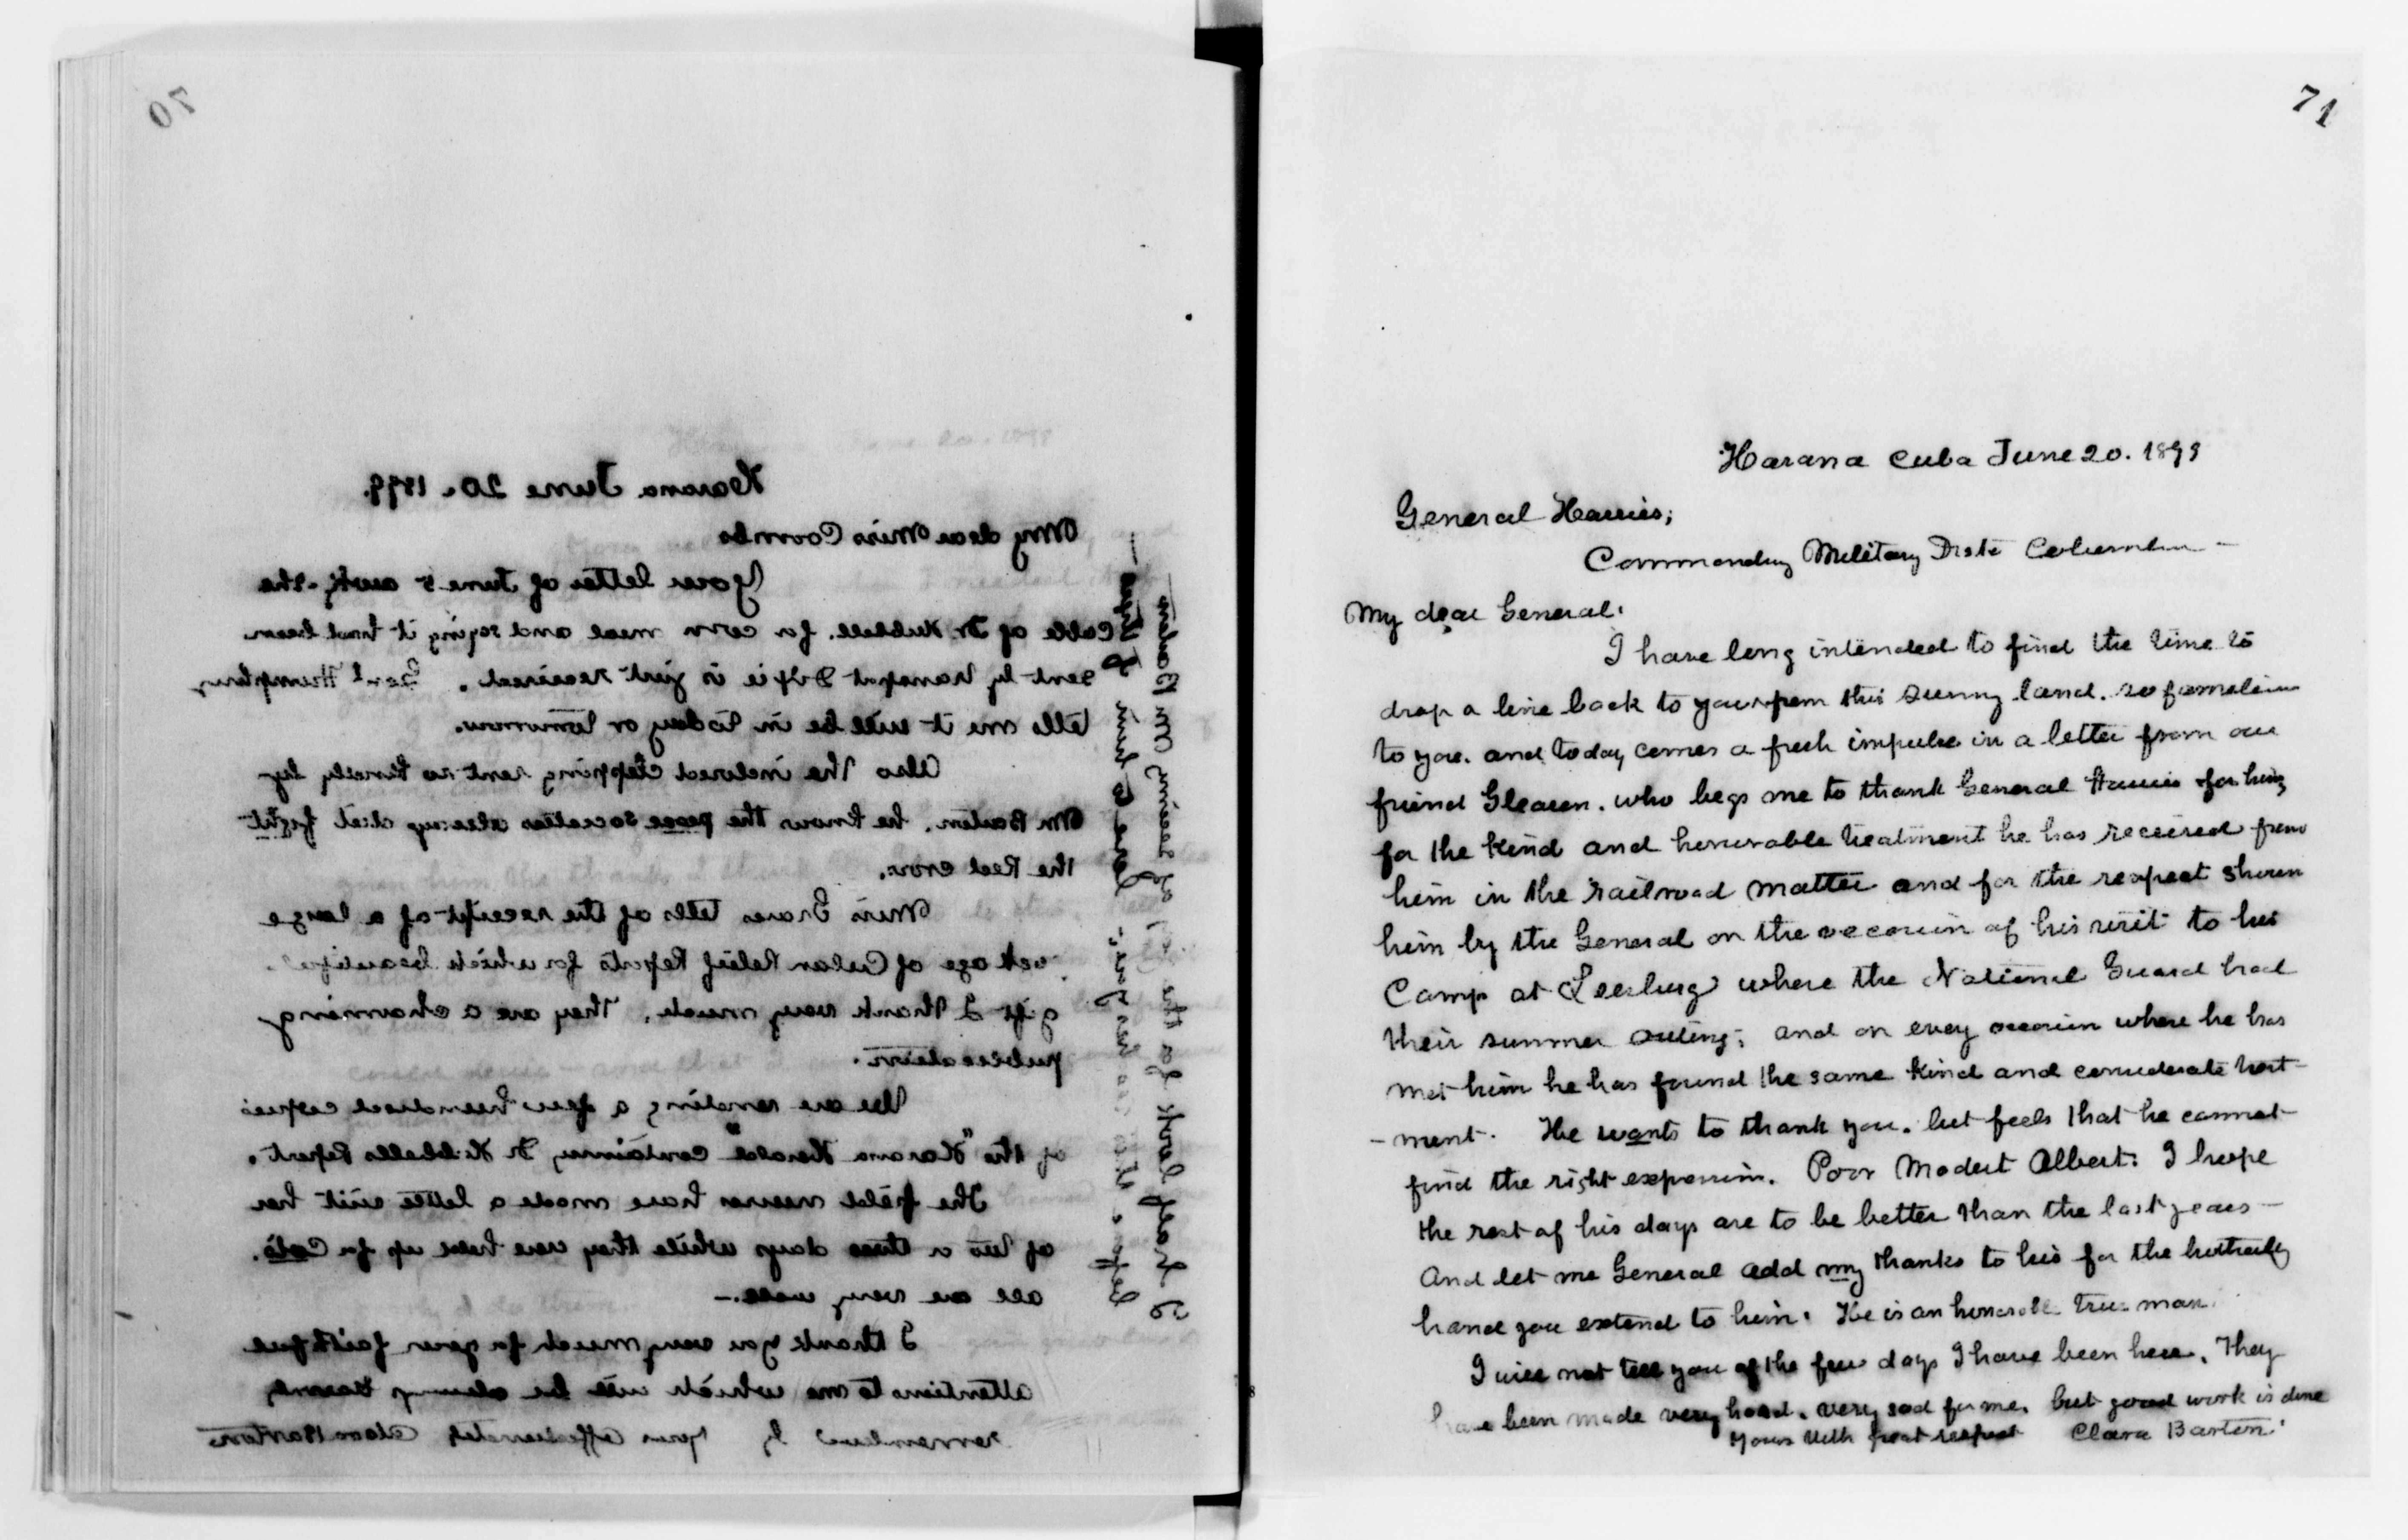 70
Havana June 20. 1899.
My dear Miss Coombs
Your letter of June 5 with the
Cable of Dr Hubbell. for corn meal and saying it had been
sent by transport Dixie is just received. Genl Humphrey
tells me it will be in today or tomorrow.
Also the inclosed clipping sent so kindly by
Mr Barton. he knows the peace societies always did fight
the Red cross.
Miss Graves tells of the receipt of a large
package of Cuban Relief Reports for which beautiful
gift I thank very much. They are a charming
publication.
We are sending a few hundred copies
of the "Havana Herald" containing Dr Hubbells Report.
The field nurses have made a little visit here
of two or three days while they were held up for Cots.
all are very well.—
I thank you very much for your faithful
attentions to me which will be always
remembered by Yours affectionately Clara Barton
71
Havana Cuba June 20. 1899
General Harries;
Commanding Military Dist Columbia —
My dear General:
I have long intended to find the time to
drop a line back to you from this sunny land. so familiar
to you. and today comes a fresh impulse in a letter from our
friend Gleason. who begs me to thank General Harries for him,
for the kind and honorable treatment he has received from
him in the railroad matter and for the respect shown
him by the General on the occasion of his visit to his
Camp at Leesburg where the National Guard had
their summer outing; and on every occasion where he has
met him he has found the same kind and considerate treat-
-ment. He wants to thank you. but feels that he cannot
find the right expression. Poor Modest Albert. I hope
the rest of his days are to be better than the last years —
And let me General add my thanks to his for the brotherly
hand you extend to him. He is an honorable true man.
I will not tell you of the few days I have been here. They
have been made very hard. very sad for me. but good work is done
Yours with great respect Clara Barton